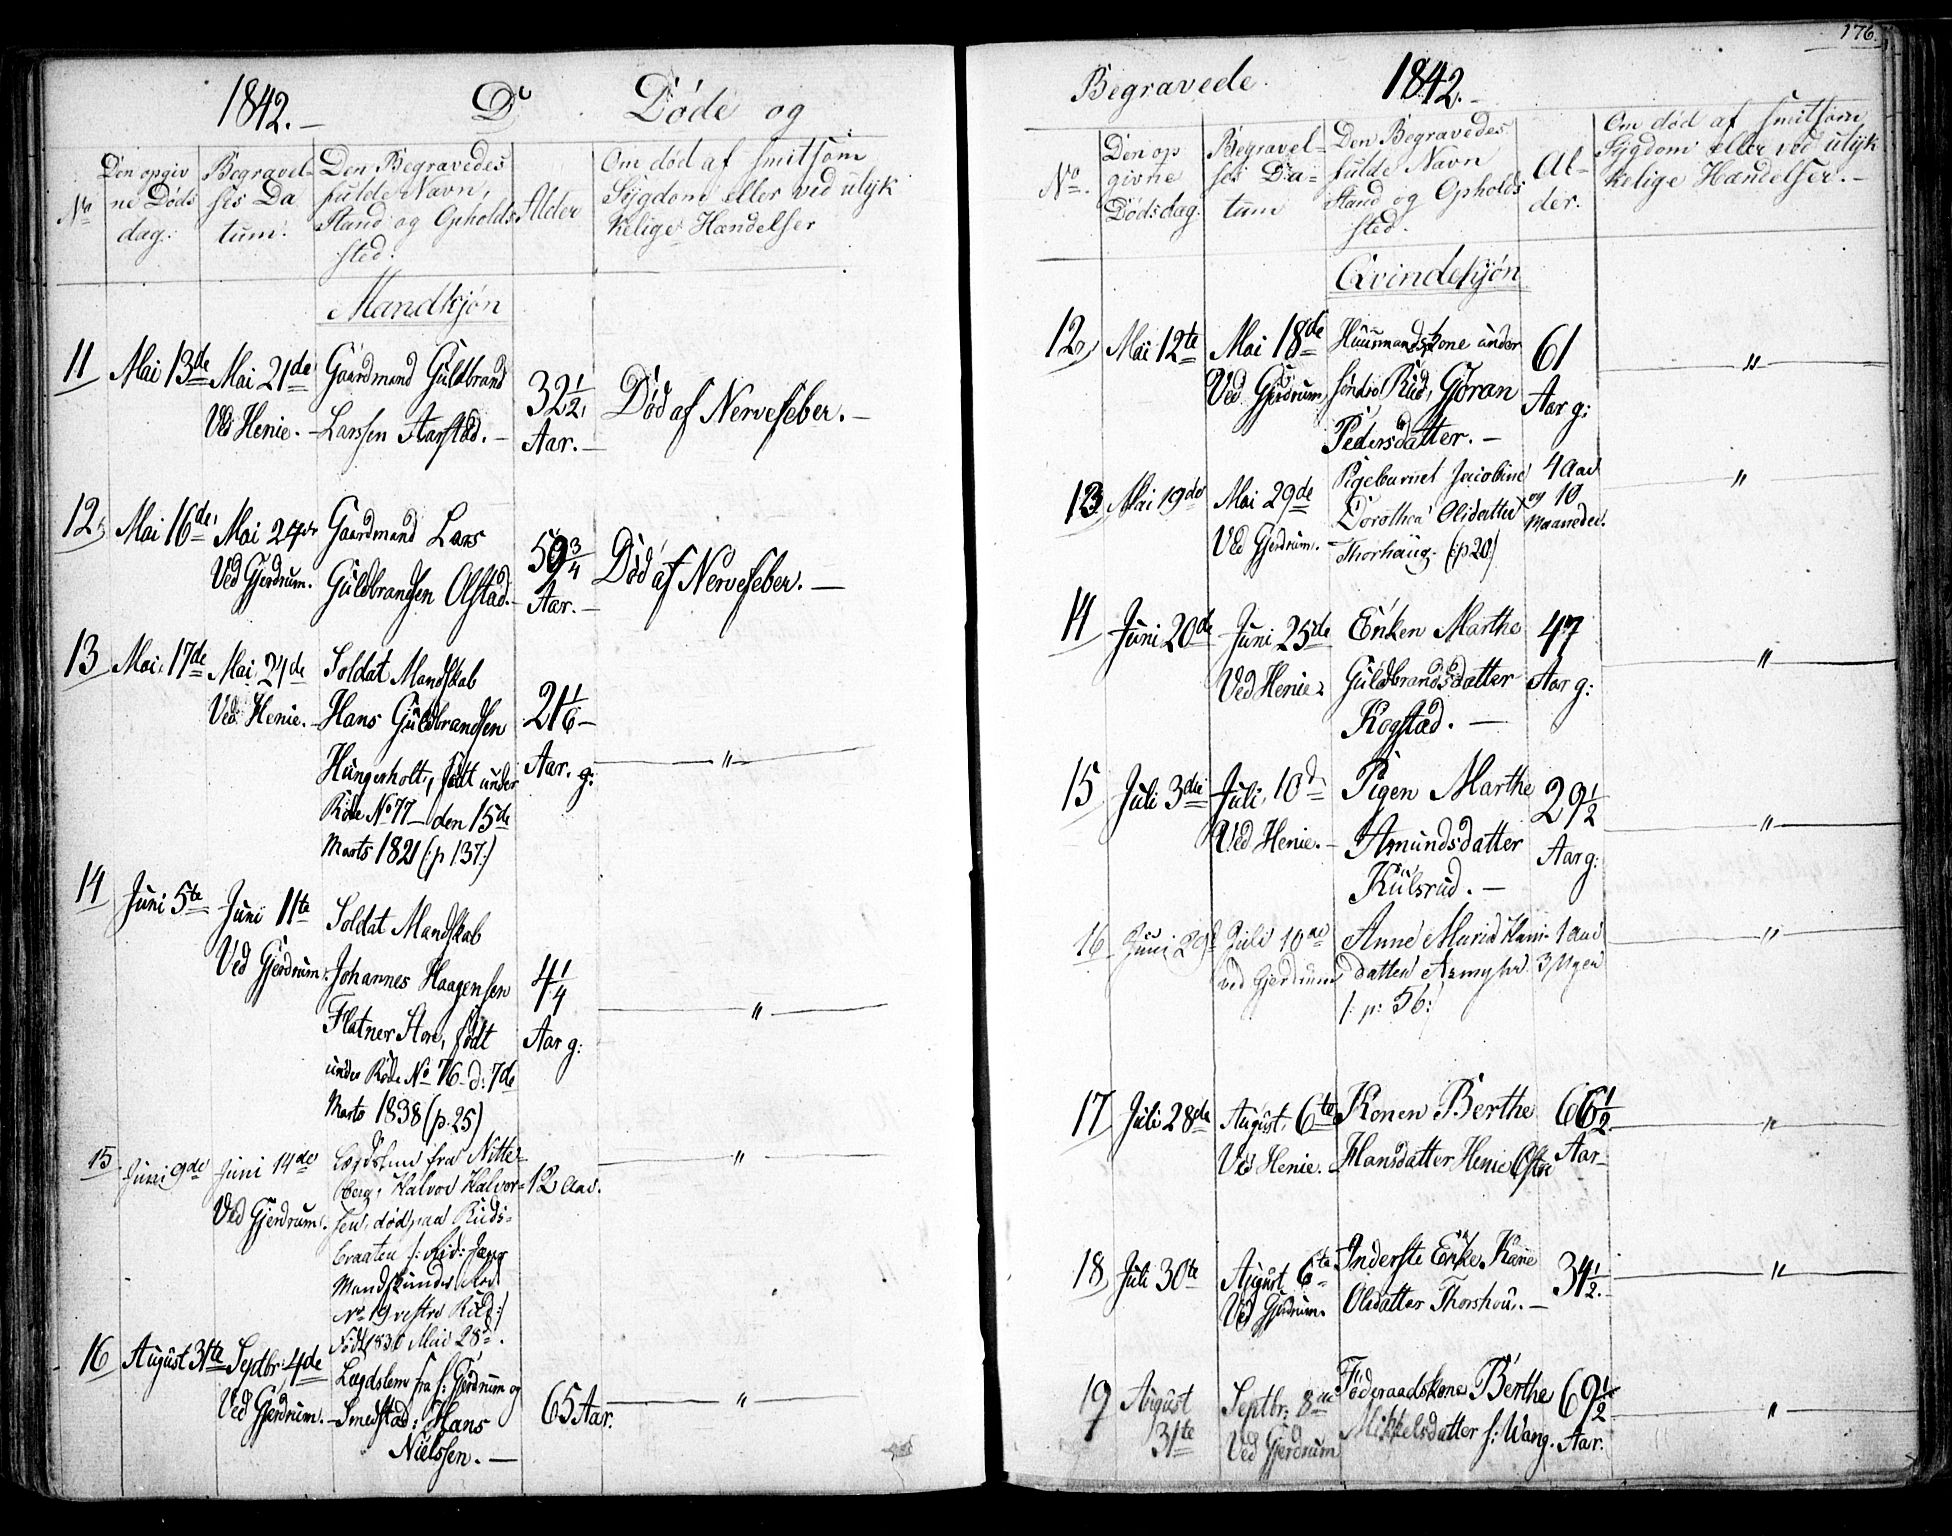 1842. D Døde og
No
Den opgiv
ne Døds
dag.
Begravel-
ses Da
tum.
Den Begravedes
fulde Navn,
Stand og Opholds
sted.
Alder
Om død af smitsom
Sygdom eller ved ulyk
kelige Hændelser
Mandkjøn
11 Mai 13de Mai 21de Gaardmand Guldbrand 32½
Ved Henie. Larssen Aarstad. Aar. Død af Nervefeber.
12, Mai 16de, Mai 24de Gaardmand Lars 59¾
Ved Gjerdrum. Guldbrandsen Olstad. Aar. Død af Nervefeber.
13 Mai 17de Mai 24de Soldat Mandskab
Ved Henie. Hans Guldbrandsen 21 1/6
Hungerholt, født under Aar. g: "
Rode No 77 den 15de
Marts 1821 (:p 137:)
14 Juni 5te Juni 11te Soldat Mandskab
Ved Gjerdrum. Johannes Haagensen 4¼
Flatner Store, født Aar g: "
under Rode No 76 d: 7de
Marts 1838 (p. 25)
15 Juni 9de Juni 14de Lægdslem fra Nitte-
berg, Halvor Halvor- 12 Aar. "
Ved Gjerdrum. sen, død paa Ruds-
braaten
No 19 vestre Rud:)
Født 1830 Mai 28de.
16 August 31te Septbr: 4de Lægdslem fra s: Gjerdrum og
Ved Gjerdrum. Smedstad: Hans 65 Aar. "
Nielssen.
176.
Begravede. 1842.
No.
Den op
givne
Dødsdag.
Begravel-
ses Da-
tum
Den Begravedes
fulde Navn
Stand og Opholds
sted.
Al-
der.
Om død af smitsom
Sygdom eller ved ulyk
kelige Hændelser.
Qvindekjøn
12, Mai 12te Mai 18de Huusmandskone under 61
Ved Gjerdrum, søndre Rud, Gjøran Aar g: "
Pedersdatter.
13 Mai 19de Mai 29de Pigebarnet Jacobine 4 Aar "
Dorothea Olsdatter og 10
Ved Gjerdrum. Thorhaug. (:p 20:) Maaneder.
14 Juni 20de Juni 25de Enken Marthe 47
Ved Henie. Guldbrandsdatter Aar g: "
Kogstad.
15 Juli 3die Juli 10de Pigen Marthe 29½
Ved Henie. Amundsdatter Aar g: "
Kulsrud.
16 Juni 29de Juli 10de Anne Maria Hans- 1 Aar "
ved Gjerdrum datter 3 Uger
/: p: 56:
17 Juli 28de August 6te Konen Berthe 66½ "
Ved Henie. Hansdatter Henie Østre Aar
18, Juli 30te August 6te Inderste Enke Karie 34½. "
Ved Gjerdrum. Olsdatter Thorshou.
19 August Septbr: 8de Føderaadskone Berthe 69½ "
31te Ved Gjerdrum Mikkelsdatter s: Wang. Aar.